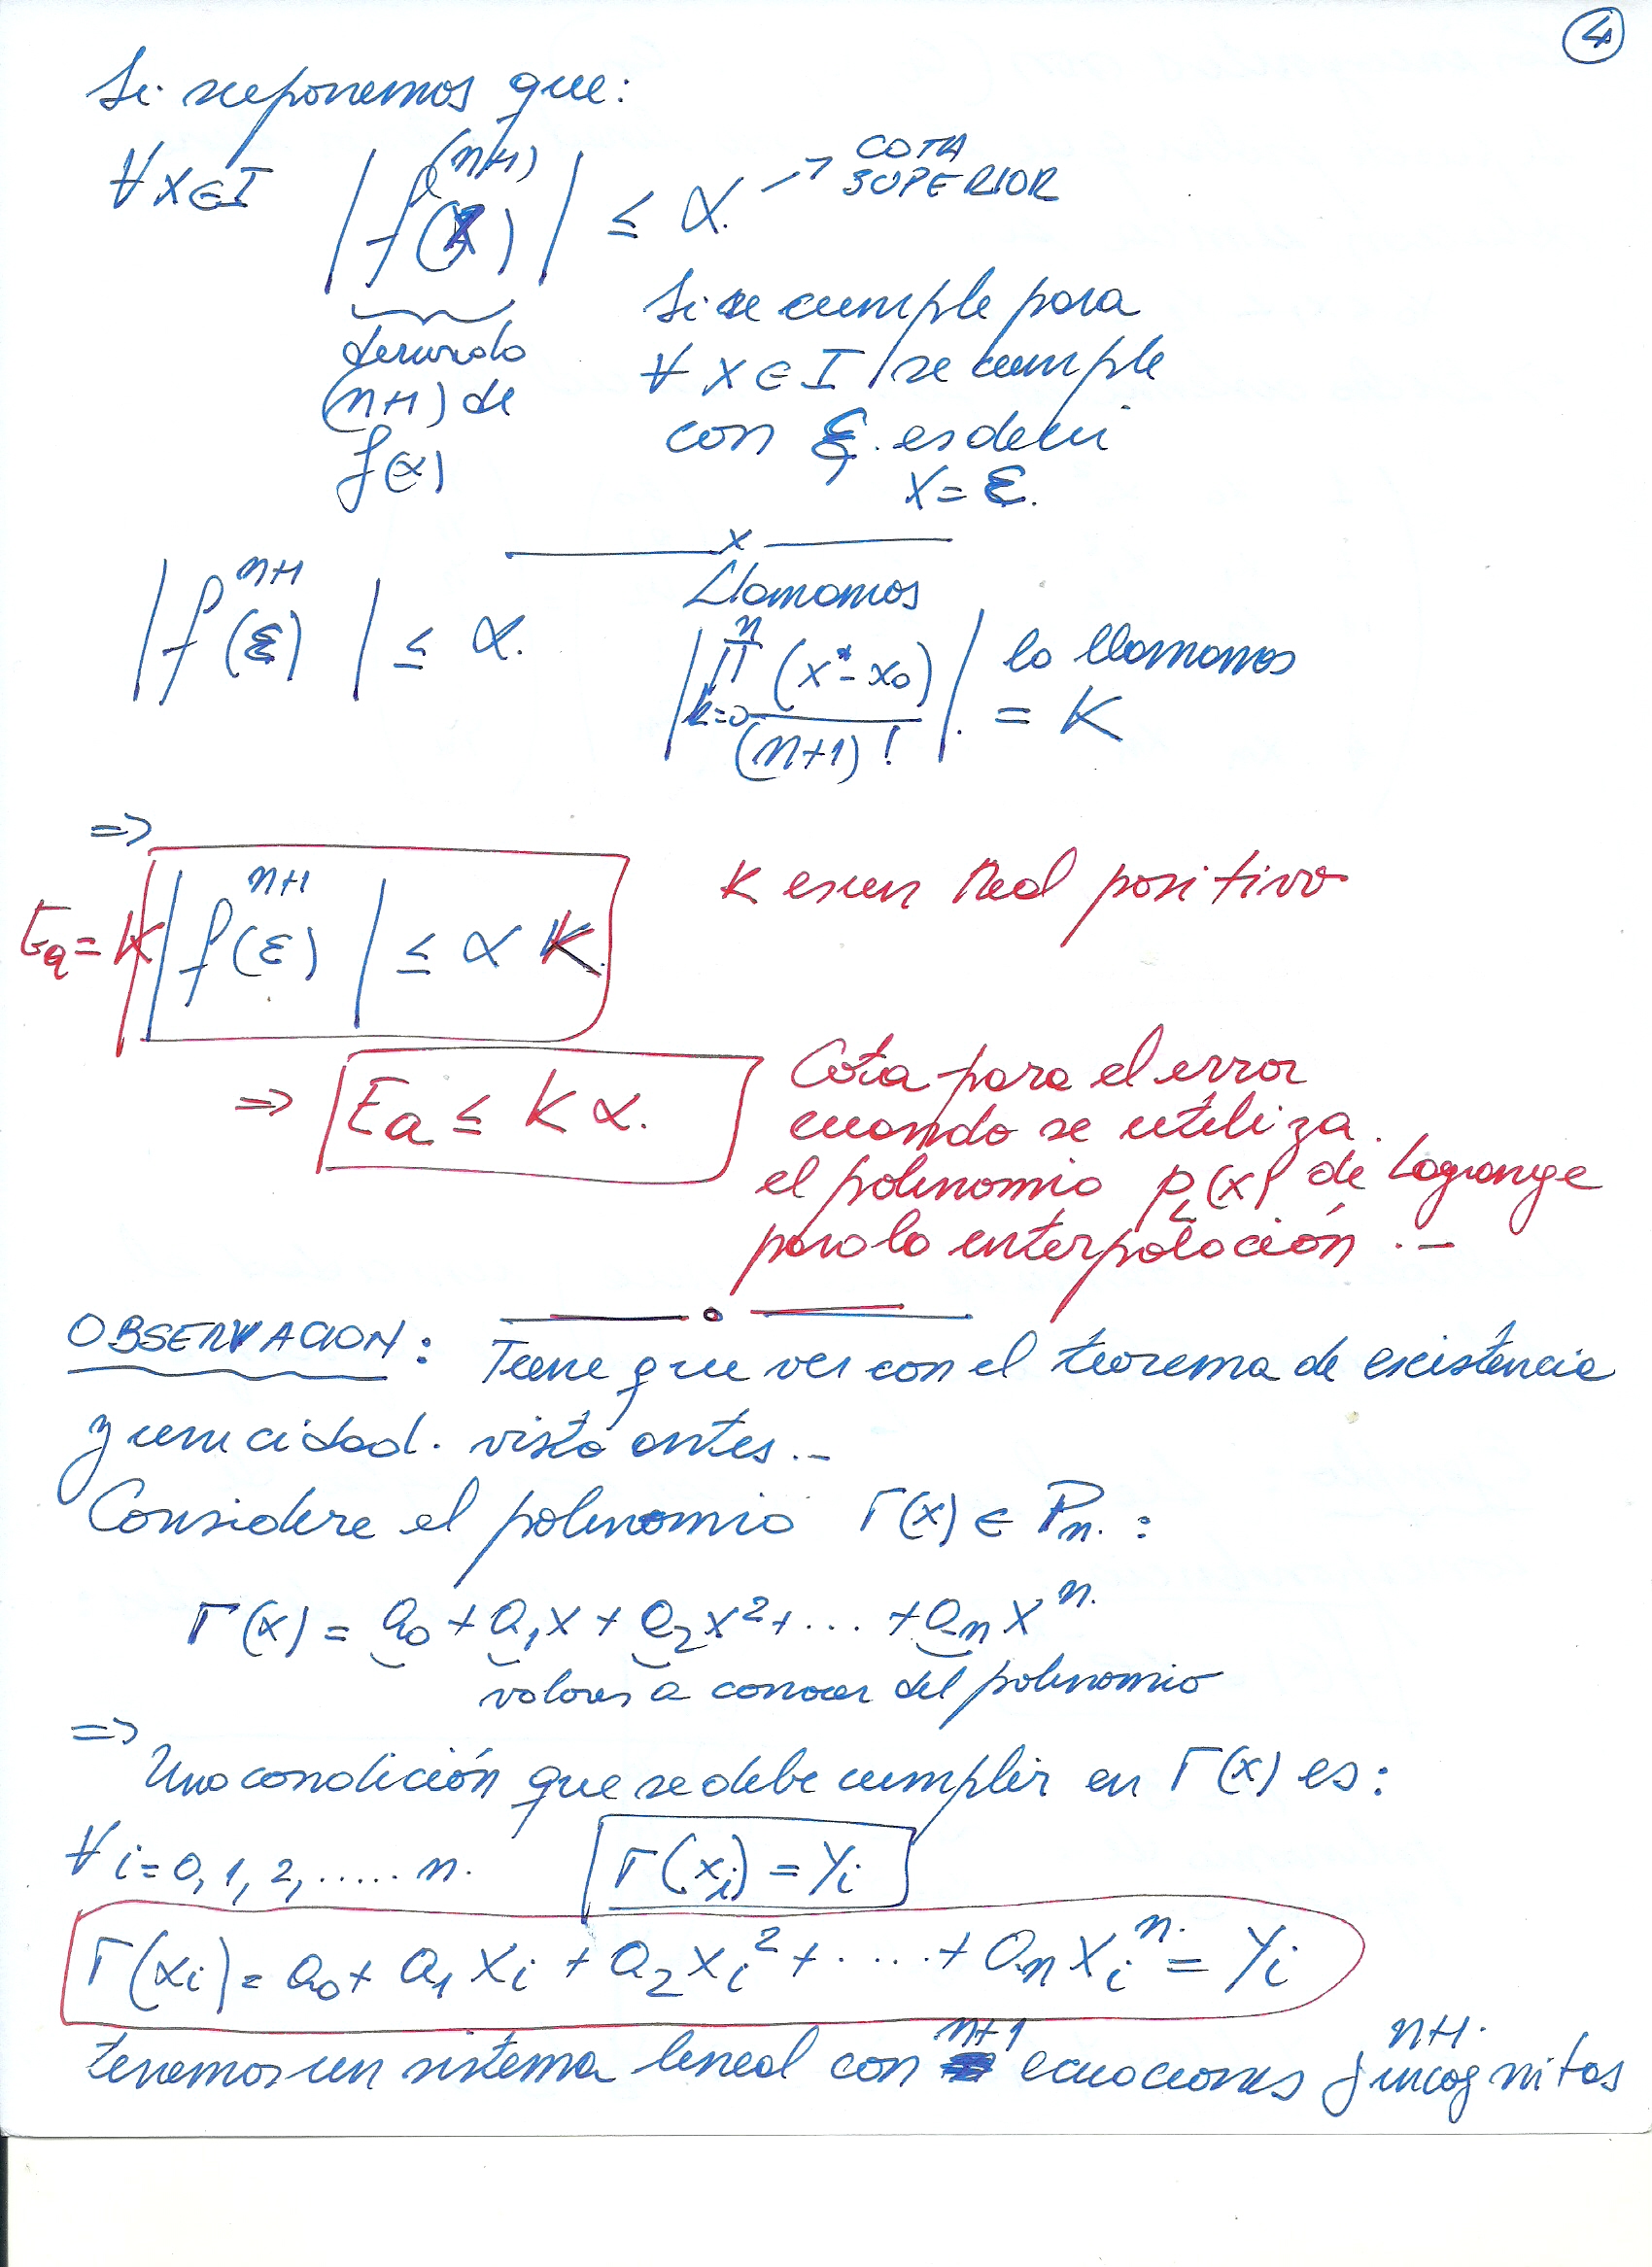 4
Si suponemos que:
∀ x ∈ I |f^(n+1)(x)| ≤ α. → COTA SUPERIOR
derivada (n+1) de f(x)
Si se cumple para
∀ x ∈ I / se cumple
con ξ. es decir
x = ξ.
x
|f^{n+1}(ξ)| ≤ α.
Llamamos
|∏_{k=0}^{n} (x* - x₀) / (n+1)!| lo llamamos = K
=>
Ea = K |f^{n+1}(ξ)| ≤ α K.
K es un Real positivo
=> Ea ≤ K α.
Cota para el error
cuando se utiliza.
el polinomio p_L(x) de Lagrange
para la interpolación .-
OBSERVACION: Tiene que ver con el teorema de existencia
y unicidad. visto antes .-
Considere el polinomio Γ(x) ∈ Pn. :
Γ(x) = a₀ + a₁x + a₂x² + ... + aₙxⁿ.
valores a conocer del polinomio
=>
Una condición que se debe cumplir en Γ(x) es:
∀ i = 0, 1, 2, ..... n. Γ(xᵢ) = yᵢ
Γ(xᵢ) = a₀ + a₁ xᵢ + a₂ xᵢ² + ..... + aₙ xᵢⁿ = yᵢ
tenemos un sistema lineal con n+1 ecuaciones y n+1. incognitas